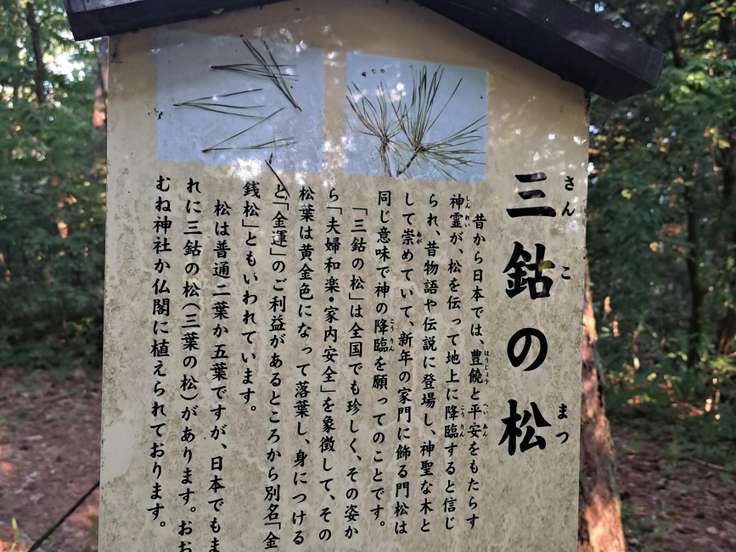 三鈷の松
さんこ まつ
昔から日本では、豊饒と平安をもたらす
神霊が、松を伝って地上に降臨すると信じ
られ、昔物語や伝説に登場し、神聖な木と
して崇めていて、新年の家門に飾る門松は
同じ意味で神の降臨を願ってのことです。
「三鈷の松」は全国でも珍しく、その姿か
ら「夫婦和楽・家内安全」を象徴して、その
松葉は黄金色になって落葉し、身につける
と「金運」のご利益があるところから別名「金
銭松」ともいわれています。
松は普通二葉か五葉ですが、日本でもま
れに三鈷の松(三葉の松)があります。おお
むね神社か仏閣に植えられております。